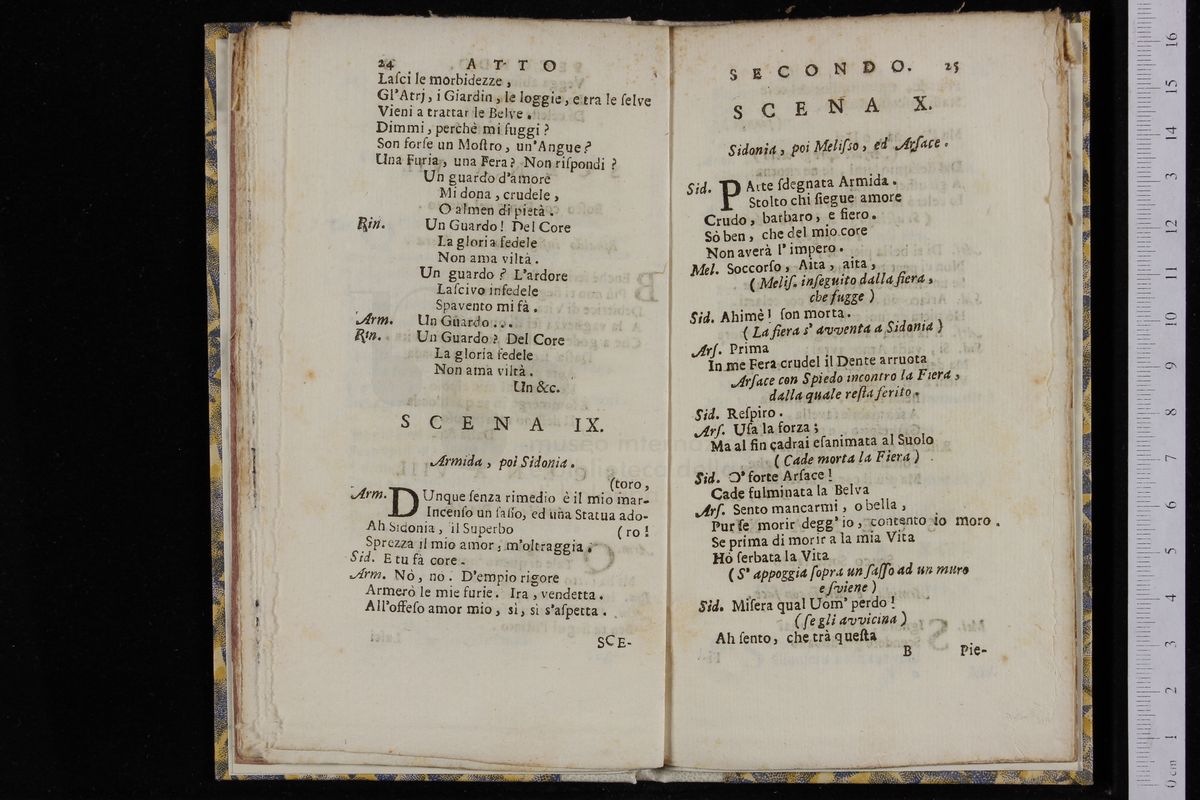 24 ATTO
Laſci le morbidezze,
Gl'Atrj, i Giardin, le loggie, e tra le ſelve
Vieni a trattar le Belve.
Dimmi, perchè mi fuggi?
Son forſe un Moſtro, un'Angue?
Una Furia, una Fera? Non riſpondi?
Un guardo d'amore
Mi dona, crudele,
O almen di pietà.
Rin. Un Guardo! Del Core
La gloria fedele
Non ama viltà.
Un guardo? L'ardore
Laſcivo infedele
Spavento mi fà.
Arm. Un Guardo...
Rin. Un Guardo? Del Core
La gloria fedele
Non ama viltà.
Un &c.
SCENA IX.
Armida, poi Sidonia.
(toro,
Arm. DUnque ſenza rimedio è il mio mar-
Incenſo un ſaſſo, ed una Statua ado-
Ah Sidonia, il Superbo (ro!
Sprezza il mio amor, m'oltraggia.
Sid. E tu fà core.
Arm. Nò, no. D'empio rigore
Armerò le mie furie. Ira, vendetta.
All'offeſo amor mio, sì, sì s'aſpetta.
SCE-
SECONDO. 25
SCENA X.
Sidonia, poi Meliſſo, ed Arſace.
Sid. PArte ſdegnata Armida.
Stolto chi ſiegue amore
Crudo, barbaro, e fiero.
Sò ben, che del mio core
Non averà l'impero.
Mel. Soccorſo, Aita, aita,
(Meliſ. inſeguito dalla fiera,
che fugge)
Sid. Ahimè! ſon morta.
(La fiera s'avventa a Sidonia)
Arſ. Prima
In me Fera crudel il Dente arruota
Arſace con Spiedo incontro la Fiera,
dalla quale reſta ferito.
Sid. Reſpiro.
Arſ. Uſa la forza;
Ma al fin cadrai eſanimata al Suolo
(Cade morta la Fiera)
Sid. O' forte Arſace!
Cade fulminata la Belva
Arſ. Sento mancarmi, o bella,
Pur ſe morir degg'io, contento io moro.
Se prima di morir a la mia Vita
Hò ſerbata la Vita
(S'appoggia ſopra un ſaſſo ad un muro
e ſviene)
Sid. Miſera qual Uom' perdo!
(ſe gli avvicina)
Ah ſento, che trà queſta
B Pie-